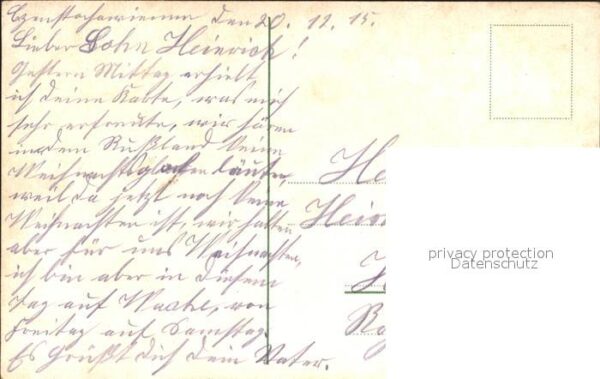 Czenstochowienna den 20. 12. 15.
Lieber Sohn Heinrich!
Gestern Mittag erhielt
ich deine Karte, was mich
sehr erfreute, wir hören
in dem Rußland keine
Weihnachtsglocken läuten,
weil da jetzt noch keine
Weihnachten ist, wir halten
aber für uns Weihnachten,
ich bin aber in diesem
Tag auf Wache, von
Freitag auf Samstag.
Es grüßt dich dein Vater.
Heinr
privacy protection
Datenschutz